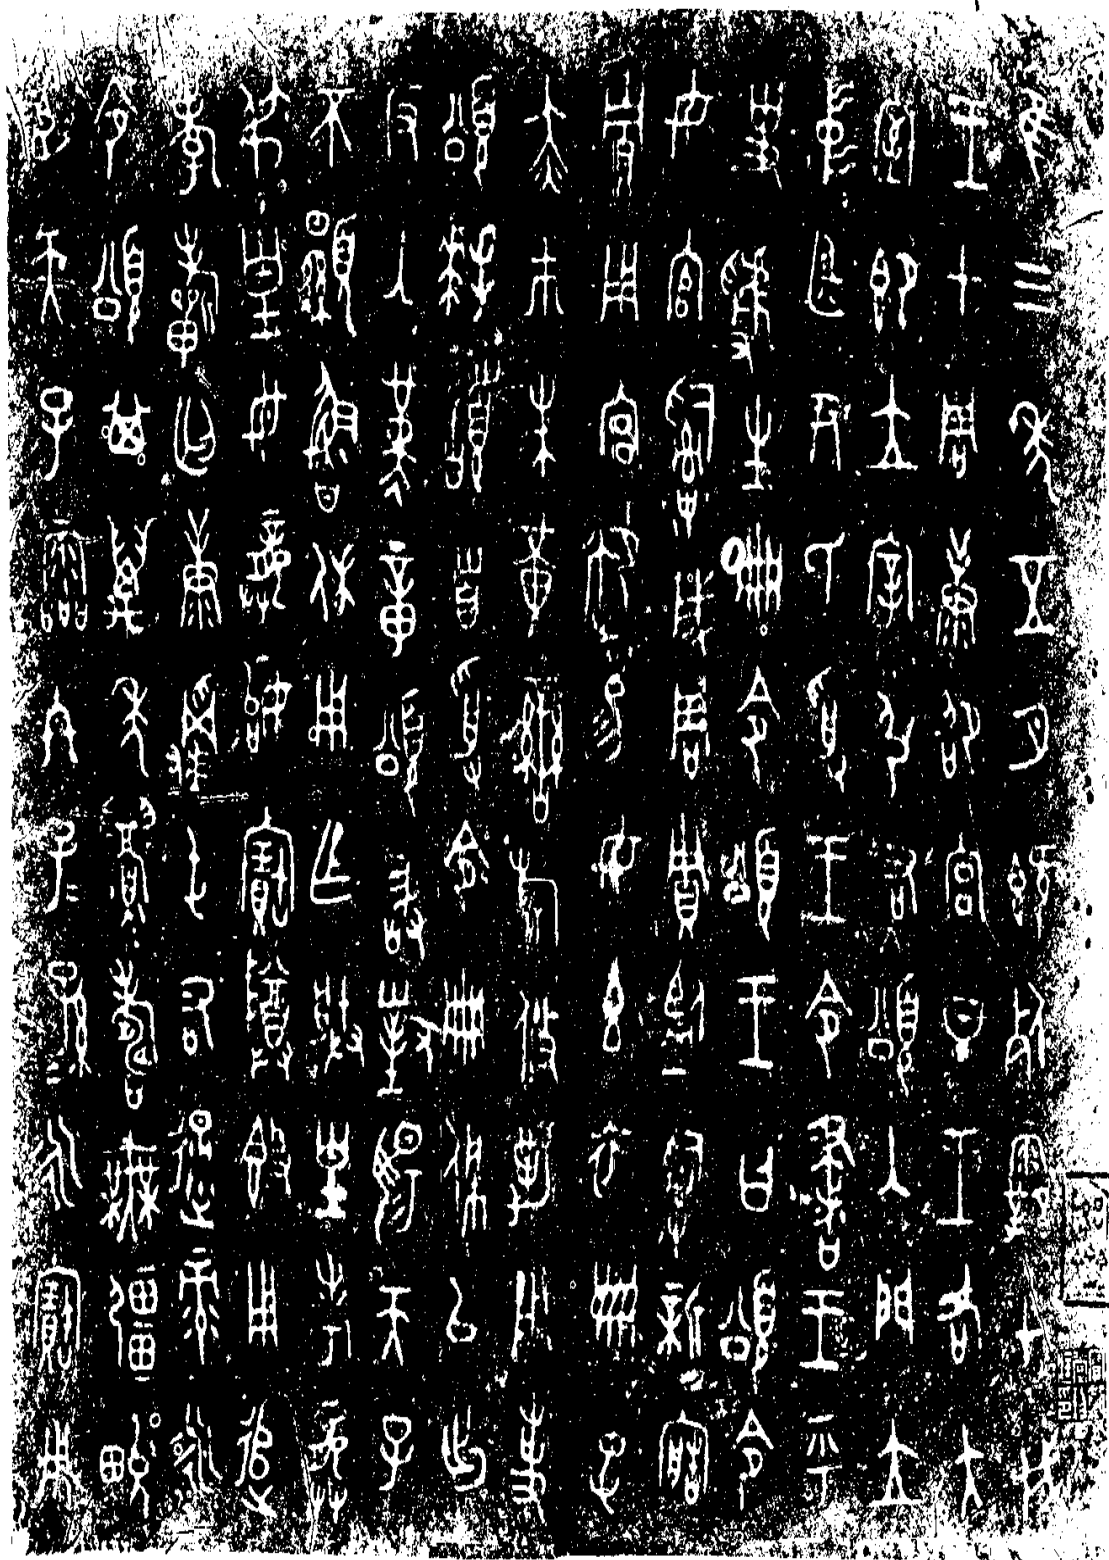 隹三年五月既死霸甲戌
王才周康卲宮旦王各大
室即立宰引右頌入門立
中廷尹氏受王令書王乎
史虢生冊令頌王曰頌令
女官𤔲成周貯監𤔲新寤
貯用宮御易女玄衣黹屯
赤巿朱黃䜌旂攸勒用事
頌拜𩒨首受令冊佩以出
反入堇章頌敢對揚天子
不顯魯休用乍朕皇考龏
弔皇母龏始寶尊𣪘用追
孝祈匄康𠭯屯右通彔永
令頌其萬年眉壽無彊畯
臣天子霝冬子=孫=永寶用